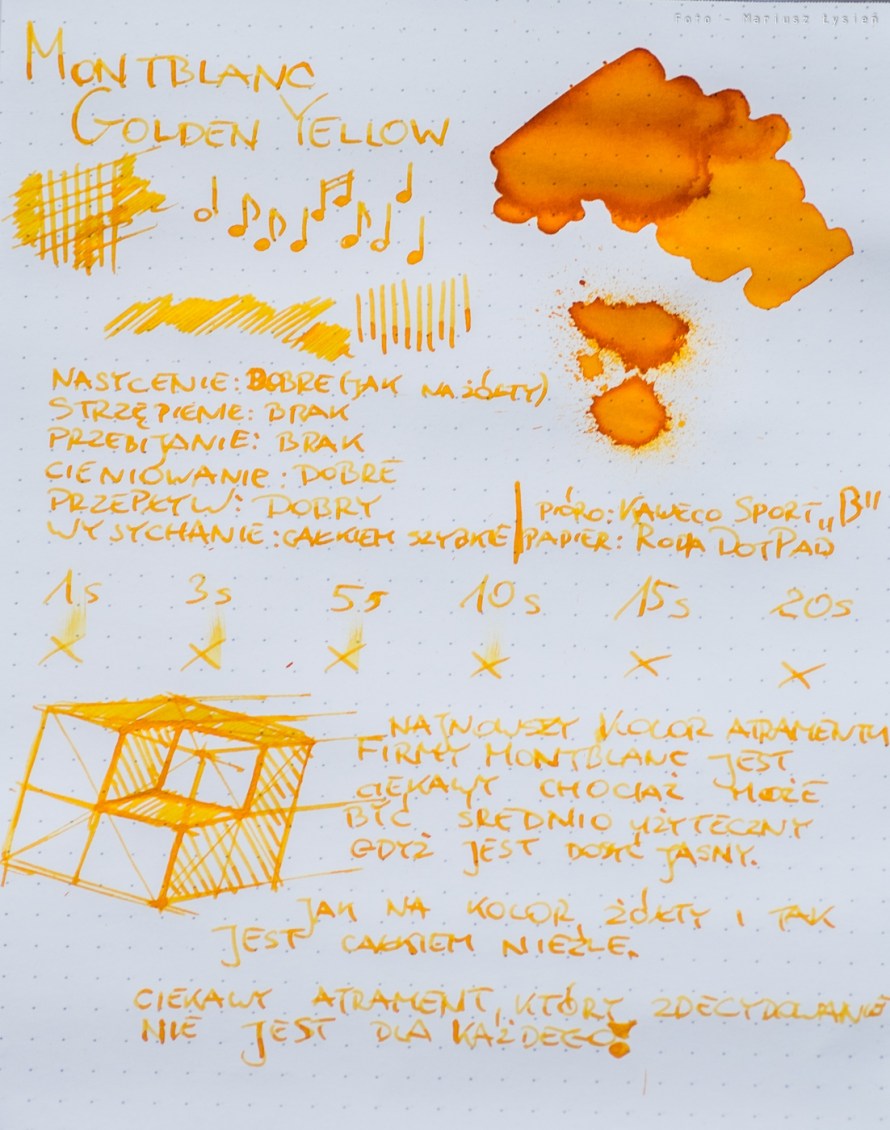 Foto - Mariusz Łysień
MONTBLANC
GOLDEN YELLOW
NASYCENIE: DOBRE (JAK NA ŻÓŁTY)
STRZĘPIENIE: BRAK
PRZEBIJANIE: BRAK
CIENIOWANIE: DOBRE
PRZEPŁYW: DOBRY
WYSYCHANIE: CAŁKIEM SZYBKIE
PIÓRO: KAWECO SPORT „B"
PAPIER: RODIA DOTPAD
1s 3s 5s 10s 15s 20s
NAJNOWSZY KOLOR ATRAMENTU
FIRMY MONTBLANC JEST
CIEKAWY CHOCIAŻ MOŻE
BYĆ ŚREDNIO UŻYTECZNY
GDYŻ JEST DOŚĆ JASNY.
JAK NA KOLOR ŻÓŁTY I TAK
JEST CAŁKIEM NIEŹLE.
CIEKAWY ATRAMENT, KTÓRY ZDECYDOWANIE
NIE JEST DLA KAŻDEGO!